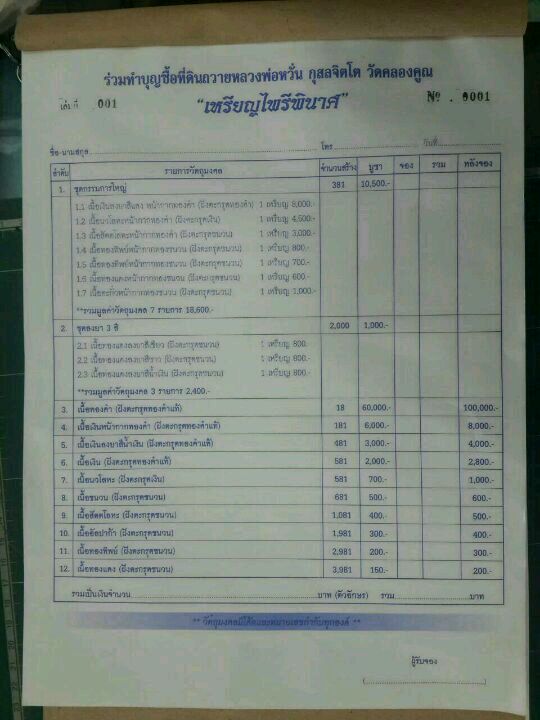 ร่วมทำบุญซื้อที่ดินถวายหลวงพ่อหวั่น กุสลจิตโต วัดคลองคูณ
เล่มที่ 001 "เหรียญไพรีพินาศ" № . 0001
ชื่อ-นามสกุล โทร วันที่
ลำดับ รายการวัตถุมงคล จำนวนสร้าง บูชา จอง รวม หลังจอง
1. ชุดกรรมการใหญ่ 381 10,500.-
1.1 เนื้อเงินลงยาสีแดง หน้ากากทองคำ (ฝังตะกรุดทองคำ) 1 เหรียญ 8,000.-
1.2 เนื้อนวโลหะหน้ากากทองคำ (ฝังตะกรุดเงิน) 1 เหรียญ 4,500.-
1.3 เนื้อสัตตโลหะหน้ากากทองคำ (ฝังตะกรุดชนวน) 1 เหรียญ 3,000.-
1.4 เนื้อทองทิพย์หน้ากากทองชนวน (ฝังตะกรุดชนวน) 1 เหรียญ 800.-
1.5 เนื้อทองทิพย์หน้ากากทองชนวน (ฝังตะกรุดชนวน) 1 เหรียญ 700.-
1.6 เนื้อทองแดงหน้ากากทองชนวน (ฝังตะกรุดชนวน) 1 เหรียญ 600.-
1.7 เนื้อตะกั่วหน้ากากทองชนวน (ฝังตะกรุดชนวน) 1 เหรียญ 1,000.-
**รวมมูลค่าวัตถุมงคล 7 รายการ 18,600.-
2. ชุดลงยา 3 สี 2,000 1,000.-
2.1 เนื้อทองแดงลงยาสีเขียว (ฝังตะกรุดชนวน) 1 เหรียญ 800.-
2.2 เนื้อทองแดงลงยาสีขาว (ฝังตะกรุดชนวน) 1 เหรียญ 800.-
2.3 เนื้อทองแดงลงยาสีน้ำเงิน (ฝังตะกรุดชนวน) 1 เหรียญ 800.-
**รวมมูลค่าวัตถุมงคล 3 รายการ 2,400.-
3. เนื้อทองคำ (ฝังตะกรุดทองคำแท้) 18 60,000.- 100,000.-
4. เนื้อเงินหน้ากากทองคำ (ฝังตะกรุดทองคำแท้) 181 6,000.- 8,000.-
5. เนื้อเงินลงยาสีน้ำเงิน (ฝังตะกรุดทองคำแท้) 481 3,000.- 4,000.-
6. เนื้อเงิน (ฝังตะกรุดทองคำแท้) 581 2,000.- 2,800.-
7. เนื้อนวโลหะ (ฝังตะกรุดเงิน) 581 700.- 1,000.-
8. เนื้อชนวน (ฝังตะกรุดชนวน) 681 500.- 600.-
9. เนื้อสัตตโลหะ (ฝังตะกรุดชนวน) 1,081 400.- 500.-
10. เนื้ออัลปาก้า (ฝังตะกรุดชนวน) 1,981 300.- 400.-
11. เนื้อทองทิพย์ (ฝังตะกรุดชนวน) 2,981 200.- 300.-
12. เนื้อทองแดง (ฝังตะกรุดชนวน) 3,981 150.- 200.-
รวมเป็นเงินจำนวน บาท (ตัวอักษร) รวม บาท
** วัตถุมงคลมีโค้ดและหมายเลขกำกับทุกองค์ **
ผู้รับจอง
(                    )